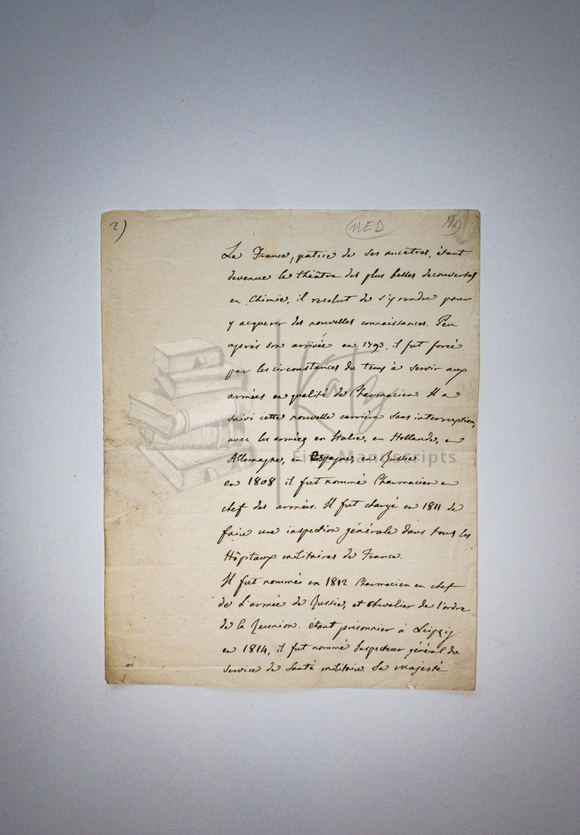 2)
MED
La France, patrie de ses ancêtres, étant
devenue le théâtre des plus belles decouvertes
en Chimie, il resolut de s'y rendre pour
y acquerir des nouvelles connaissances. Peu
après son arrivée en 1793, il fut forcé
par les circonstances du tems à servir aux
armées en qualité de Pharmacien. Il a
suivi cette nouvelle carrière sans interruption,
avec les armées en Italie, en Hollande, en
Allemagne, en Espagne, en Russie.
en 1808 il fut nommé Pharmacien en
chef des armées. Il fut chargé en 1811 de
faire une inspection générale dans tous les
Hôpitaux militaires de France.
Il fut nommé en 1812 Pharmacien en chef
de l'armée de Russie, et Chevalier de l'ordre
de la Reunion. étant prisonnier à Leipzig
en 1814, il fut nommé Inspecteur général du
service de santé militaire. Sa majesté
Katz
Fine Manuscripts